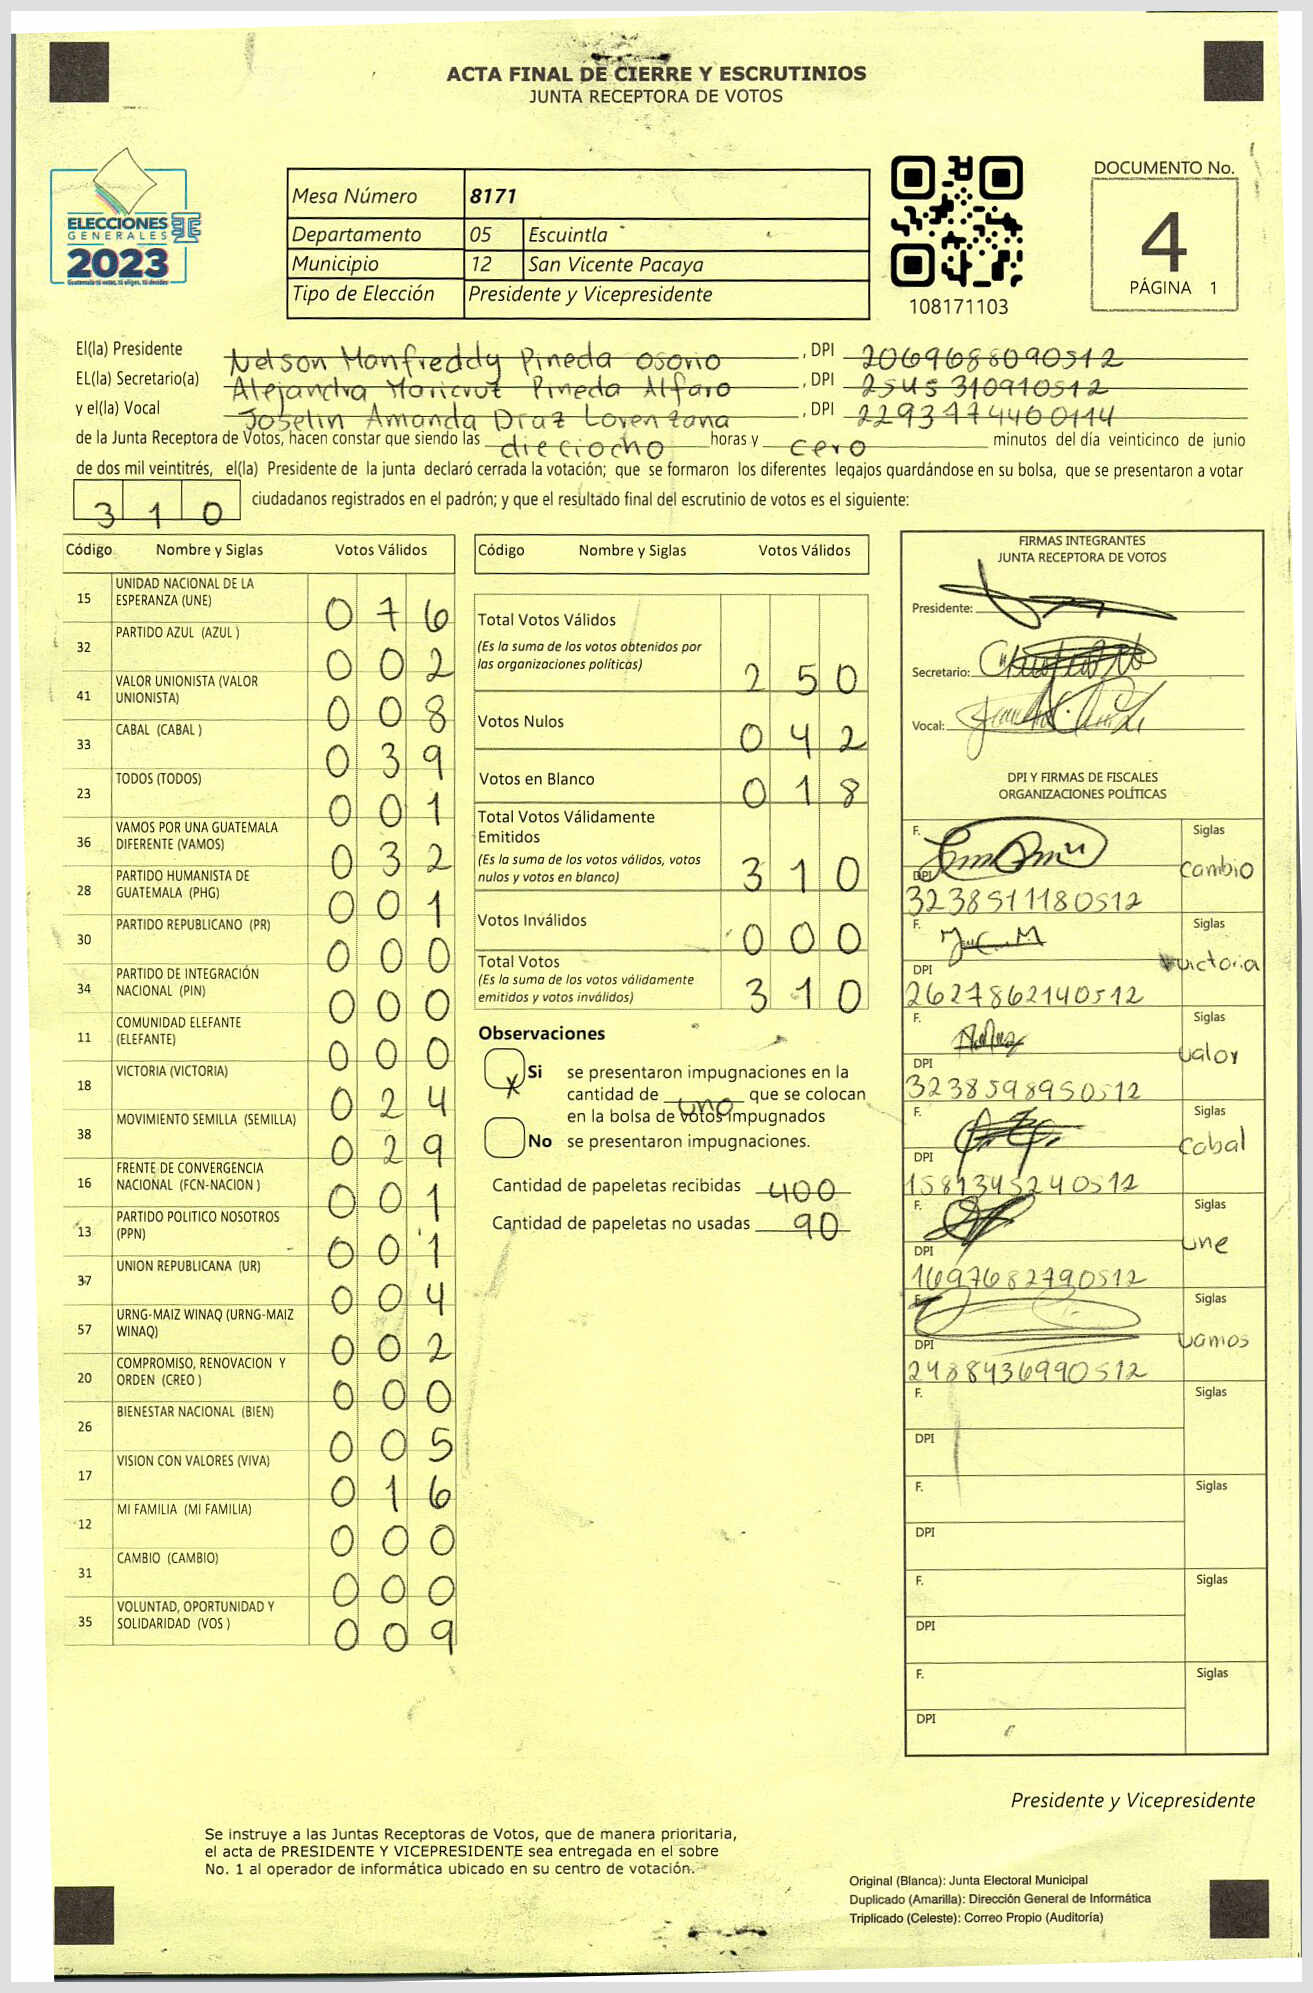 ACTA FINAL DE CIERRE Y ESCRUTINIOS
JUNTA RECEPTORA DE VOTOS
ELECCIONES
GENERALES
2023
Guatemala tú votas, tú eliges, tú decides
Mesa Número 8171
Departamento 05 Escuintla
Municipio 12 San Vicente Pacaya
Tipo de Elección Presidente y Vicepresidente
108171103
DOCUMENTO No.
4
PÁGINA 1
El(la) Presidente Nelson Manfreddy Pineda Osorio , DPI 2069688090512
EL(la) Secretario(a) Alejandra Maricruz Pineda Alfaro , DPI 2545310910512
y el(la) Vocal Joselin Amanda Díaz Lorenzana , DPI 2293174460114
de la Junta Receptora de Votos, hacen constar que siendo las dieciocho horas y cero minutos del día veinticinco de junio
de dos mil veintitrés, el(la) Presidente de la junta declaró cerrada la votación; que se formaron los diferentes legajos guardándose en su bolsa, que se presentaron a votar
310 ciudadanos registrados en el padrón; y que el resultado final del escrutinio de votos es el siguiente:
Código Nombre y Siglas Votos Válidos
15 UNIDAD NACIONAL DE LA ESPERANZA (UNE) 076
32 PARTIDO AZUL (AZUL ) 002
41 VALOR UNIONISTA (VALOR UNIONISTA) 008
33 CABAL (CABAL ) 039
23 TODOS (TODOS) 001
36 VAMOS POR UNA GUATEMALA DIFERENTE (VAMOS) 032
28 PARTIDO HUMANISTA DE GUATEMALA (PHG) 001
30 PARTIDO REPUBLICANO (PR) 000
34 PARTIDO DE INTEGRACIÓN NACIONAL (PIN) 000
11 COMUNIDAD ELEFANTE (ELEFANTE) 000
18 VICTORIA (VICTORIA) 024
38 MOVIMIENTO SEMILLA (SEMILLA) 029
16 FRENTE DE CONVERGENCIA NACIONAL (FCN-NACION ) 001
13 PARTIDO POLITICO NOSOTROS (PPN) 001
37 UNION REPUBLICANA (UR) 004
57 URNG-MAIZ WINAQ (URNG-MAIZ WINAQ) 002
20 COMPROMISO, RENOVACION Y ORDEN (CREO ) 000
26 BIENESTAR NACIONAL (BIEN) 005
17 VISION CON VALORES (VIVA) 016
12 MI FAMILIA (MI FAMILIA) 000
31 CAMBIO (CAMBIO) 000
35 VOLUNTAD, OPORTUNIDAD Y SOLIDARIDAD (VOS ) 009
Código Nombre y Siglas Votos Válidos
Total Votos Válidos
(Es la suma de los votos obtenidos por
las organizaciones políticas) 250
Votos Nulos 042
Votos en Blanco 018
Total Votos Válidamente
Emitidos
(Es la suma de los votos válidos, votos
nulos y votos en blanco) 310
Votos Inválidos 000
Total Votos
(Es la suma de los votos válidamente
emitidos y votos inválidos) 310
Observaciones
X Si se presentaron impugnaciones en la
cantidad de uno que se colocan
en la bolsa de votos impugnados
No se presentaron impugnaciones.
Cantidad de papeletas recibidas 400
Cantidad de papeletas no usadas 90
FIRMAS INTEGRANTES
JUNTA RECEPTORA DE VOTOS
Presidente:
Secretario:
Vocal:
DPI Y FIRMAS DE FISCALES
ORGANIZACIONES POLÍTICAS
F. Siglas cambio
DPI 3238511180512
F. Siglas victoria
DPI 2627862140512
F. Siglas valor
DPI 3238598950512
F. Siglas cabal
DPI 1581345240512
F. Siglas une
DPI 1697682790512
F. Siglas vamos
DPI 2488436990512
F. Siglas
DPI
F. Siglas
DPI
F. Siglas
DPI
F. Siglas
DPI
Presidente y Vicepresidente
Se instruye a las Juntas Receptoras de Votos, que de manera prioritaria,
el acta de PRESIDENTE Y VICEPRESIDENTE sea entregada en el sobre
No. 1 al operador de informática ubicado en su centro de votación.
Original (Blanca): Junta Electoral Municipal
Duplicado (Amarilla): Dirección General de Informática
Triplicado (Celeste): Correo Propio (Auditoría)